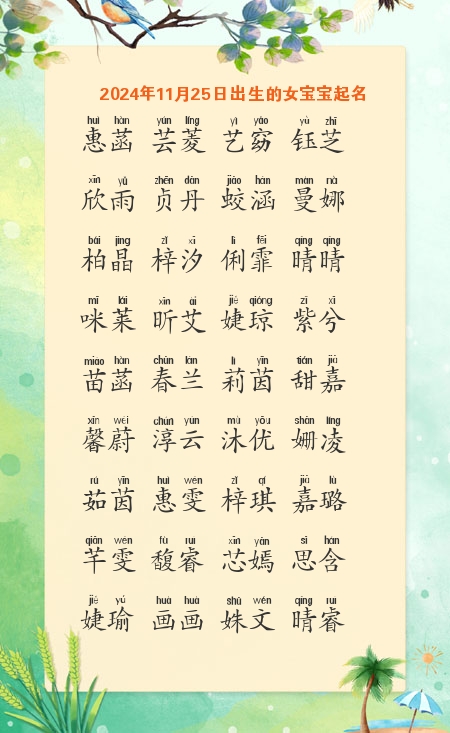 2024年11月25日出生的女宝宝起名
huì hàn yún líng yì yǎo yù zhī
惠菡 芸菱 艺窈 钰芝
xīn yǔ zhēn dān jiāo hán màn nà
欣雨 贞丹 蛟涵 曼娜
bǎi jīng zǐ xī lì fēi qíng qíng
柏晶 梓汐 俐霏 晴晴
mī lái xīn ài jié qióng zǐ xī
咪莱 昕艾 婕琼 紫兮
miáo hàn chūn lán lì yīn tián jiā
苗菡 春兰 莉茵 甜嘉
xīn wèi chún yún mù yōu shān líng
馨蔚 淳云 沐优 姗凌
rú yīn huì wén zǐ qí jiā lù
茹茵 惠雯 梓琪 嘉璐
qiān wén fù ruì xīn yān sī hán
芊雯 馥睿 芯嫣 思含
jié yú huà huà shū wén qíng ruì
婕瑜 画画 姝文 晴睿